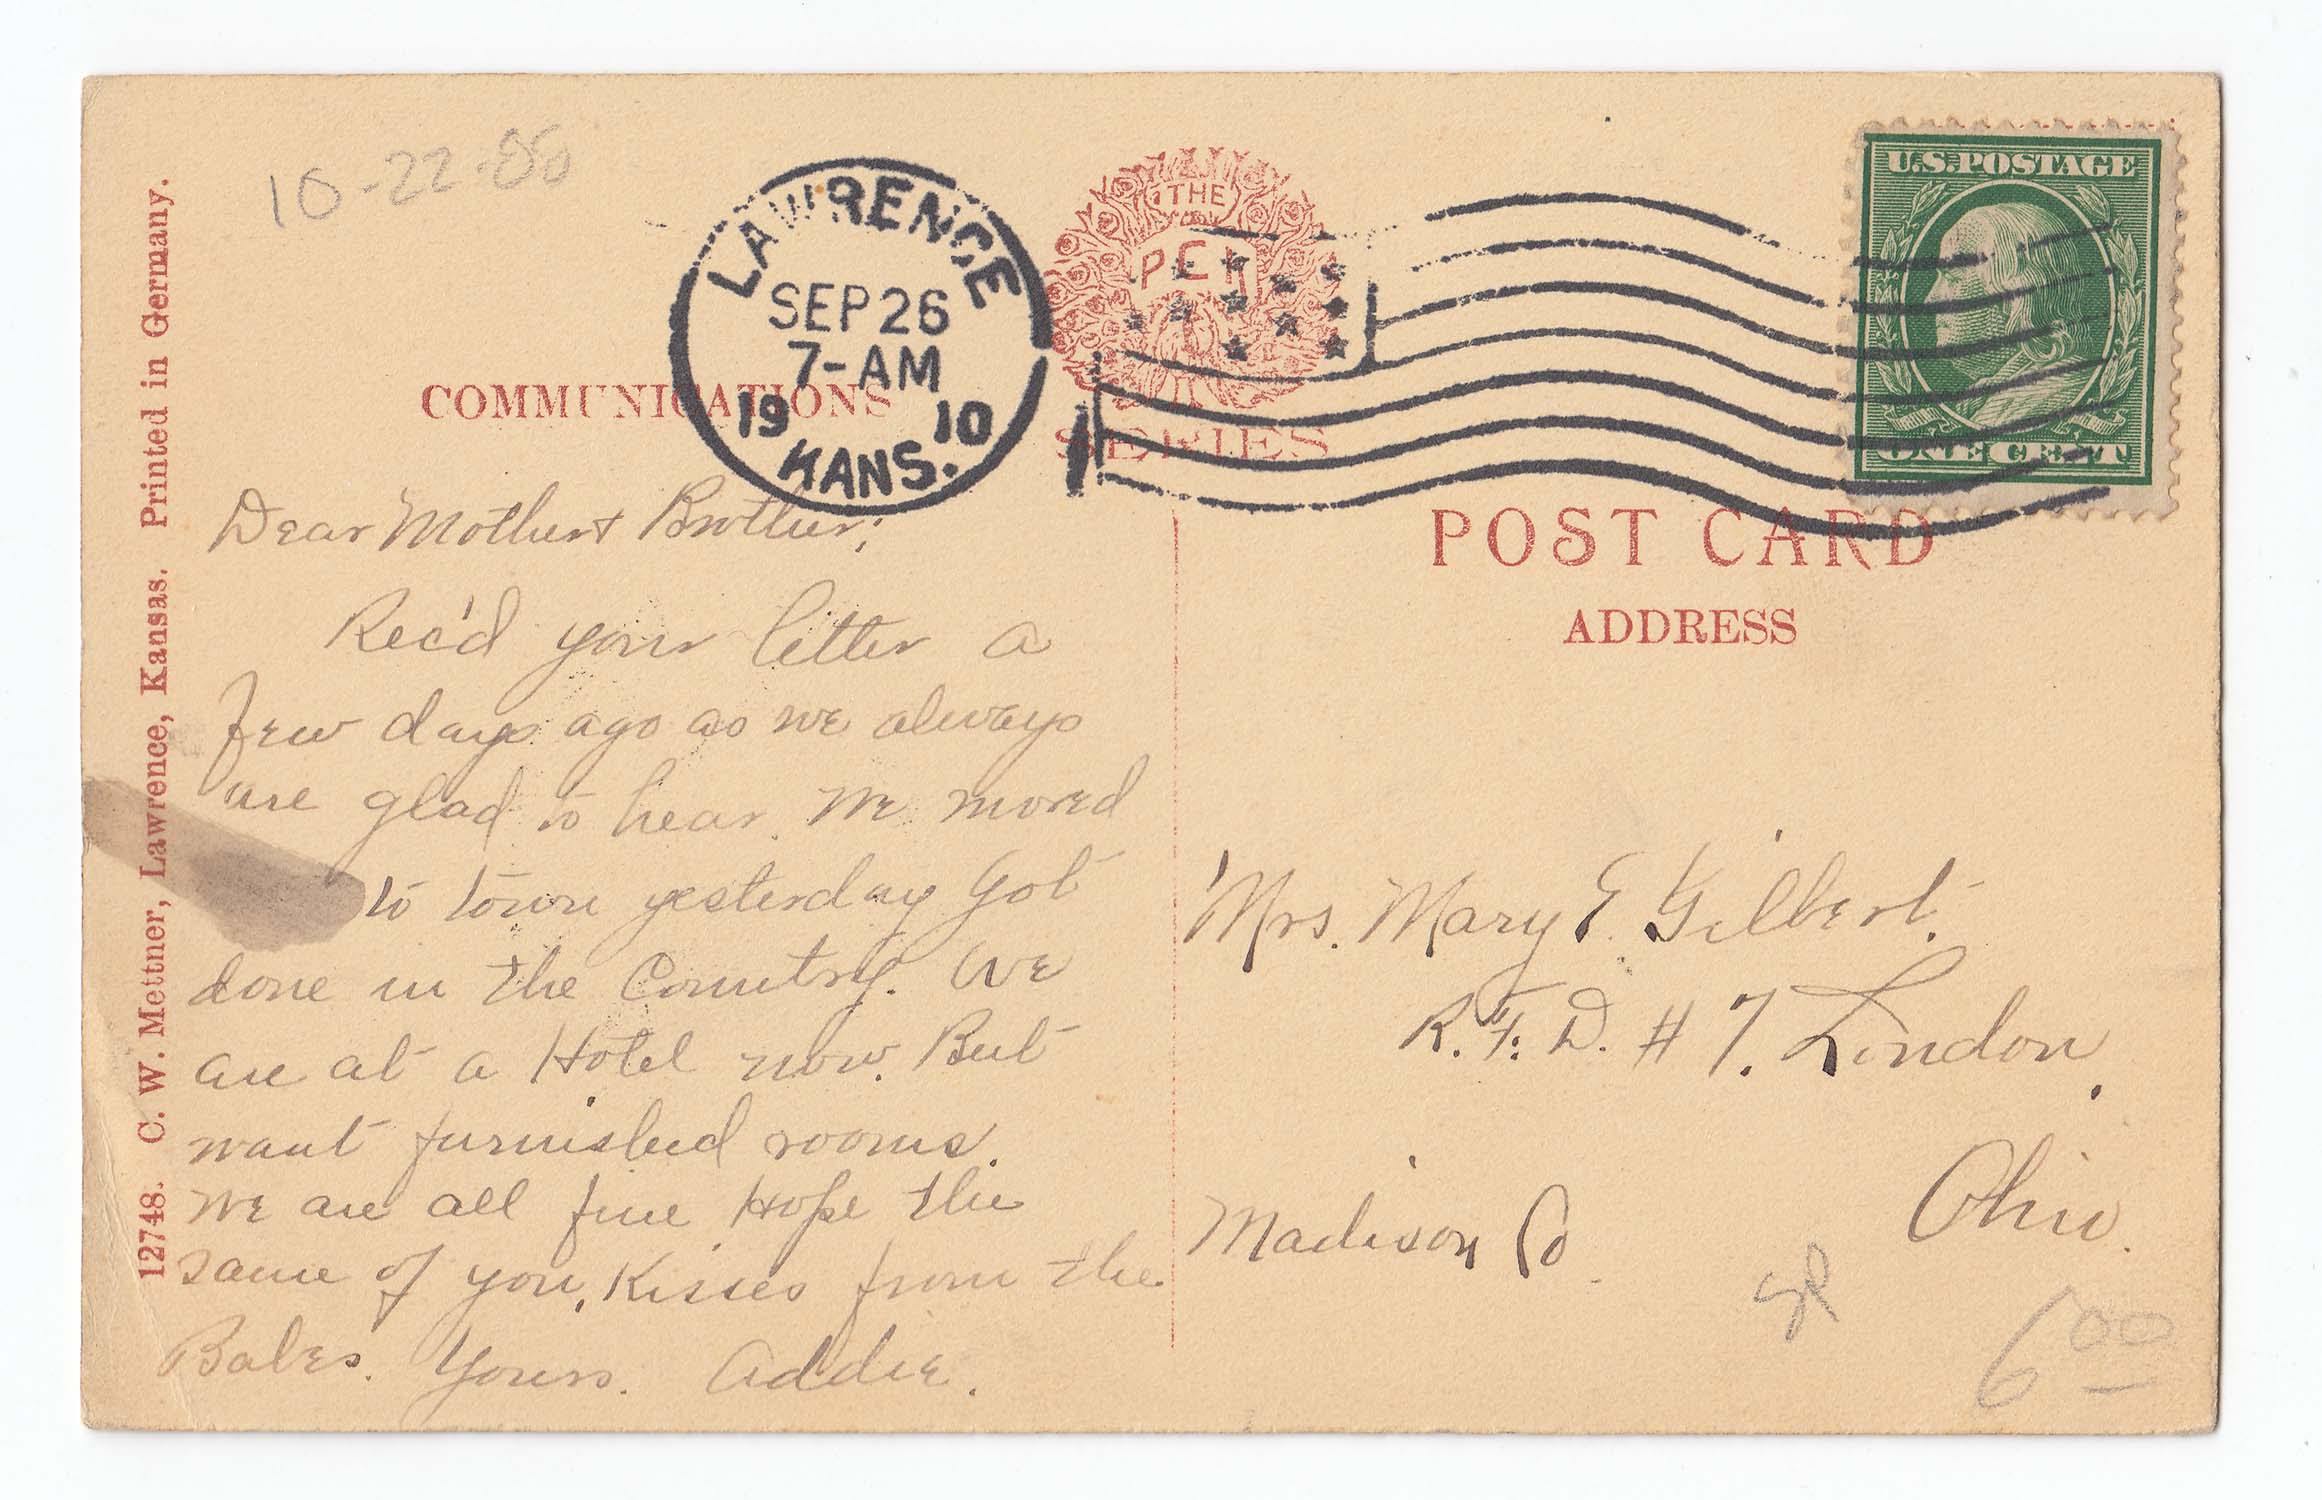 10-22-00
LAWRENCE
SEP 26
7-AM
19 10
KANS.
THE
PCK
SERIES
U.S. POSTAGE
ONE CENT
COMMUNICATIONS
POST CARD
ADDRESS
12748. C. W. Mettner, Lawrence, Kansas. Printed in Germany.
Dear Mother & Brother;
Rec'd your letter a
few days ago as we always
are glad to hear. We moved
to town yesterday Got
done in the Country. We
are at a Hotel now. But
want furnished rooms.
We are all fine Hope the
same of you. Kisses from the
Babes. Yours. Addie.
Mrs. Mary E. Gilbert.
R. F. D. # 7. London,
Ohio.
Madison Co.
6 00